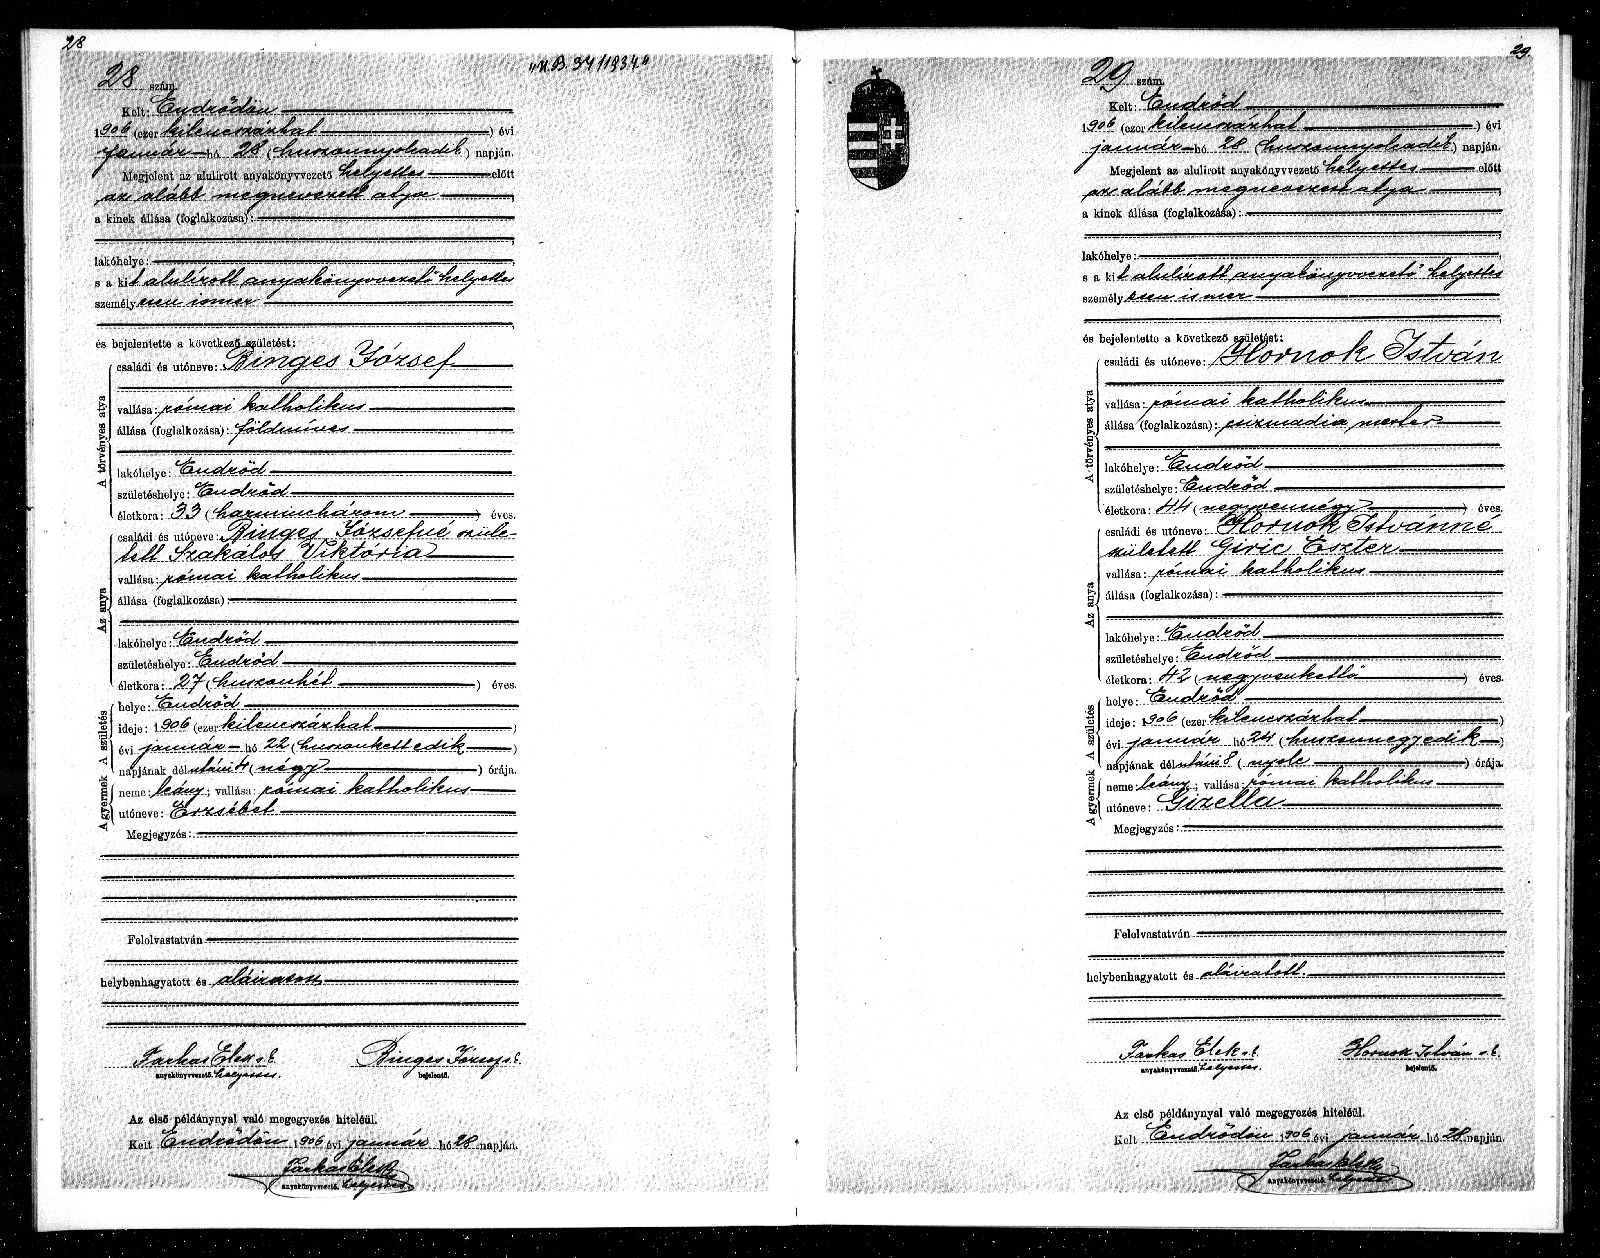 28
"U.B. 34/1934."
28 szám.
Kelt: Endrődön
1906 (ezer kilencszázhat) évi
január hó 28 (huszonnyolcadik) napján.
Megjelent az alulirott anyakönyvvezető helyettes előtt
az alább megnevezett atya
a kinek állása (foglalkozása):
lakóhelye:
s a kit alulírott anyakönyvvezető helyettes
személyesen ismer
és bejelentette a következő születést:
A törvényes atya
családi és utóneve: Binges József
vallása: római katholikus
állása (foglalkozása): földmíves
lakóhelye: Endrőd
születéshelye: Endrőd
életkora: 33 (harminchárom) éves.
Az anya
családi és utóneve: Binges Józsefné szüle-
tett Szakálos Viktória
vallása: római katholikus
állása (foglalkozása):
lakóhelye: Endrőd
születéshelye: Endrőd
életkora: 27 (huszonhét) éves.
A születés
helye: Endrőd
ideje: 1906 (ezer kilencszázhat)
évi január hó 22 (huszonkettedik)
napjának délutáni 4 (négy) órája.
A gyermek
neme: leány; vallása: római katholikus
utóneve: Erzsébet
Megjegyzés:
Felolvastatván
helybenhagyatott és aláíratott
Farkas Elek s.k. Binges József s.k.
anyakönyvvezető helyettes. bejelentő.
Az első példánynyal való megegyezés hiteléül.
Kelt Endrődön 1906 évi január hó 28 napján.
Farkas Elek
anyakönyvvezető. helyettes
29
29 szám.
Kelt: Endrőd
1906 (ezer kilencszázhat) évi
január hó 28 (huszonnyolcadik) napján.
Megjelent az alulirott anyakönyvvezető helyettes előtt
az alább megnevezett atya
a kinek állása (foglalkozása):
lakóhelye:
s a kit alulírott anyakönyvvezető helyettes
személyesen ismer
és bejelentette a következő születést:
A törvényes atya
családi és utóneve: Hornok István
vallása: római katholikus
állása (foglalkozása): csizmadia mester
lakóhelye: Endrőd
születéshelye: Endrőd
életkora: 44 (negyvennégy) éves.
Az anya
családi és utóneve: Hornok Istvánné
született Giric Eszter
vallása: római katholikus
állása (foglalkozása):
lakóhelye: Endrőd
születéshelye: Endrőd
életkora: 42 (negyvenkettő) éves.
A születés
helye: Endrőd
ideje: 1906 (ezer kilencszázhat)
évi január hó 24 (huszonnegyedik)
napjának délutáni 8 (nyolc) órája.
A gyermek
neme: leány; vallása: római katholikus
utóneve: Gizella
Megjegyzés:
Felolvastatván
helybenhagyatott és aláíratott.
Farkas Elek s.k. Hornok István s.k.
anyakönyvvezető. helyettes. bejelentő.
Az első példánynyal való megegyezés hiteléül.
Kelt Endrődön 1906 évi január hó 28 napján.
Farkas Elek
anyakönyvvezető. helyettes